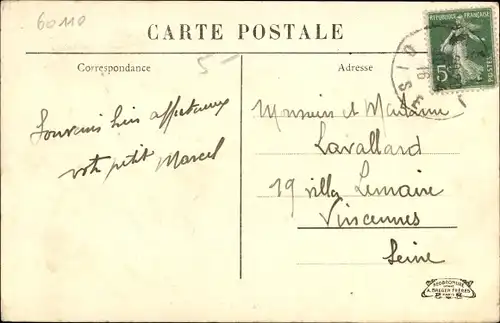 60110
CARTE POSTALE
Correspondance
5-
Adresse
RÉPUBLIQUE FRANÇAISE
5c
POSTES
OISE
Souvenirs bien affectueux
votre petit Marcel
Monsieur et Madame
Lavallard
19 villa Lemaire
Vincennes
Seine